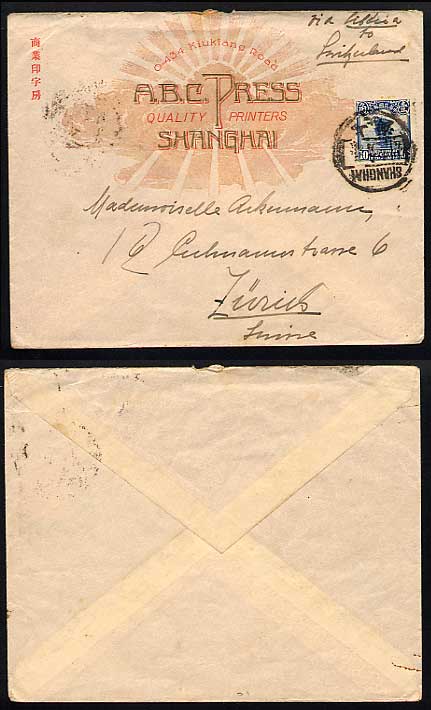 商業印字房
O-434 Kiukiang Road
A.B.C. PRESS
QUALITY PRINTERS
SHANGHAI
via
to
Switzerland
SHANGHAI
10
Mademoiselle Ackermann,
Culmannstrasse 6
Zürich
Suisse